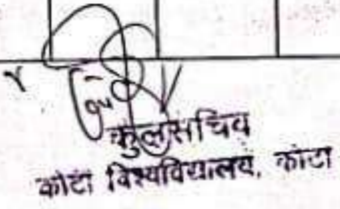 कुलसचिव
कोटा विश्वविद्यालय, कोटा